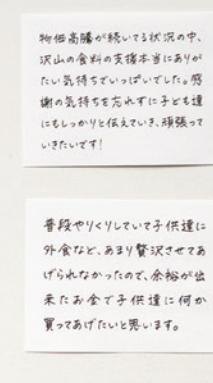 物価高騰が続いてる状況の中、
沢山の食料の支援本当にありが
たい気持ちでいっぱいでした。感
謝の気持ちを忘れずに子ども達
にもしっかりと伝えていき、頑張って
いきたいです！
普段やりくりしていて子供達に
外食など、あまり贅沢させてあ
げられなかったので、余裕が出
来たお金で子供達に何か
買ってあげたいと思います。